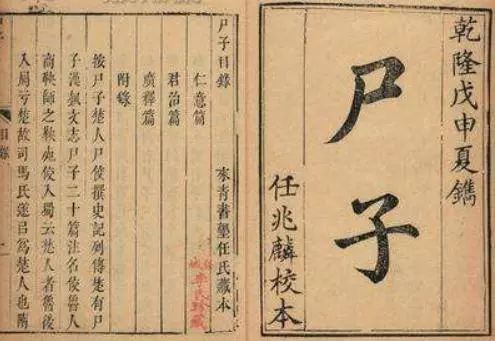 乾隆戊申夏鐫
尸子
任兆麟校本
尸子目錄
來青書塾任氏藏本
仁意篇
君治篇
廣釋篇
附錄
按尸子楚人尸佼撰史記列傳楚有尸
子漢埶文志尸子二十篇注名佼魯人
商鞅師之鞅死佼入蜀云楚人者魯後
入屬亏楚故司馬氏遂㠯爲楚人也隋
目錄
一